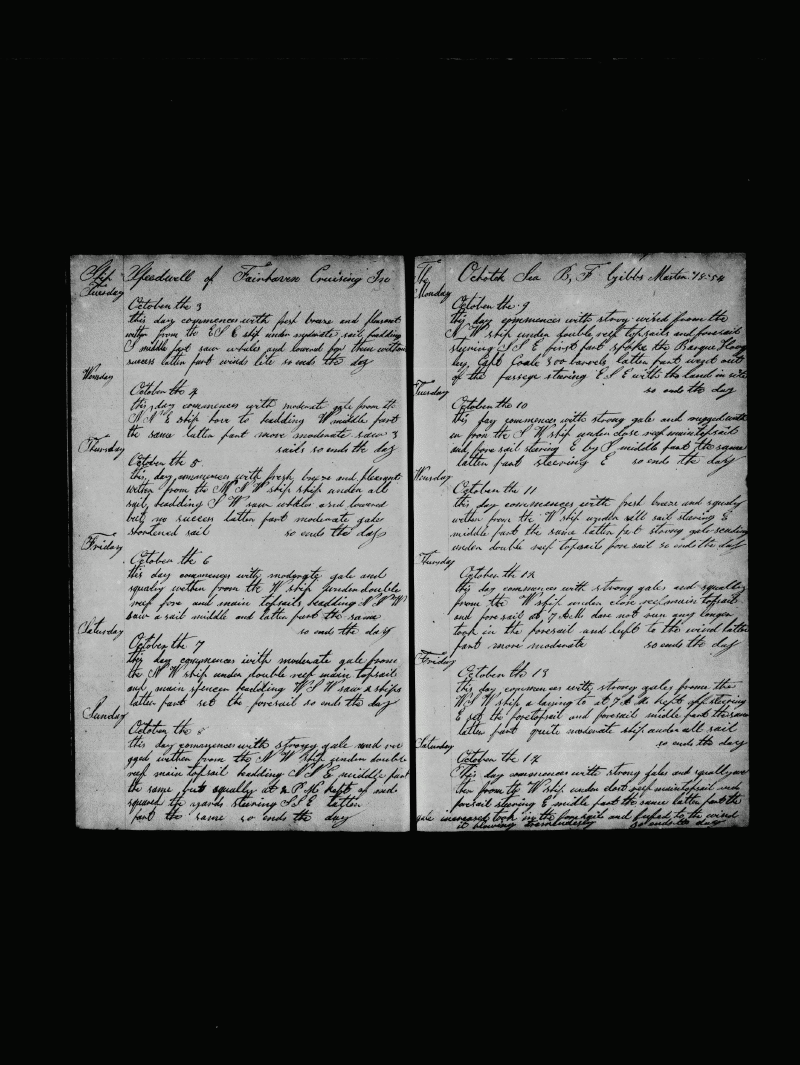 Ship Speedwell of Fairhaven Cruising In
Tuesday
October the 3
this day commences with fresh breeze and pleasant
wether from the E S E ship under moderate sail heading
S middle part saw whales and lowered for them without
success latter part winds lite so ends the day
Wensday
October the 4
this day commences with moderate gale from the
N N E ship hove to heading W middle part
the same latter part more moderate saw 3
Thursday sails so ends the day
October the 5
this day commences with fresh breeze and pleasant
wether from the N N W ship ship under all
sail heading S W saw whales and lowered
but no success latter part moderate gales
shortened sail so ends the day
Friday
October the 6
this day commences with moderate gale and
squaly wether from the W ship under double
reef fore and main topsails heading
saw a sail middle and latter part the same
Saturday so ends the day
October the 7
this day commences with moderate gale from
the N W ship under double reef main topsail
and main spencer heading W S W saw 2 ships
latter part set the foresail so ends the day
Sunday
October the 8
this day commences with strong gale and rug
ged wether from the N W ship under double
reef main topsail heading S S E middle part
the same but squaly at 2 P M kept of and
squared the yards stering S S E latter
part the same so ends the day
The Ochotsk Sea B, F Gibbs Master 1854
Monday
October the 9
this day commences with strong wind from the
N W ship under double reef topsails and foresail
steering S S E first part spoke the Barque
Capt Coale 300 barrels latter part went out
of the passege steering E S E with the land in site
Tuesday so ends the day
October the 10
this day commences with strong gale and rugged weth
er from the S W ship under close reef maintopsail
and foresail stering E by S middle part the same
latter part steering E so ends the day
Wensday
October the 11
this day commences with fresh breeze and squaly
wether from the W ship under all sail stering E
middle part the same latter part strong gale scuding
under double reef topsails fore sail so ends the day
Thursday
October the 12
this day commences with strong gales and squally
from the W ship under close reef main topsail
and fore sail at 7 A M dare not run any longer
took in the foresail and luft to the wind latter
part more moderate so ends the day
Friday
October the 13
this day commences with strong gales from the
W S W ship a laying to at 7 A M kept off steering
E set the foretopsail and foresail middle part the same
latter part quite moderate ship under all sail
Saturday so ends the day
October the 14
This day commences with strong gales and squally we
ther from the W ship under close reef maintopsail and
foresail steering E middle part the same latter part the
gale increased took in the foresail and to the wind
it blowing tremendously so ends the day